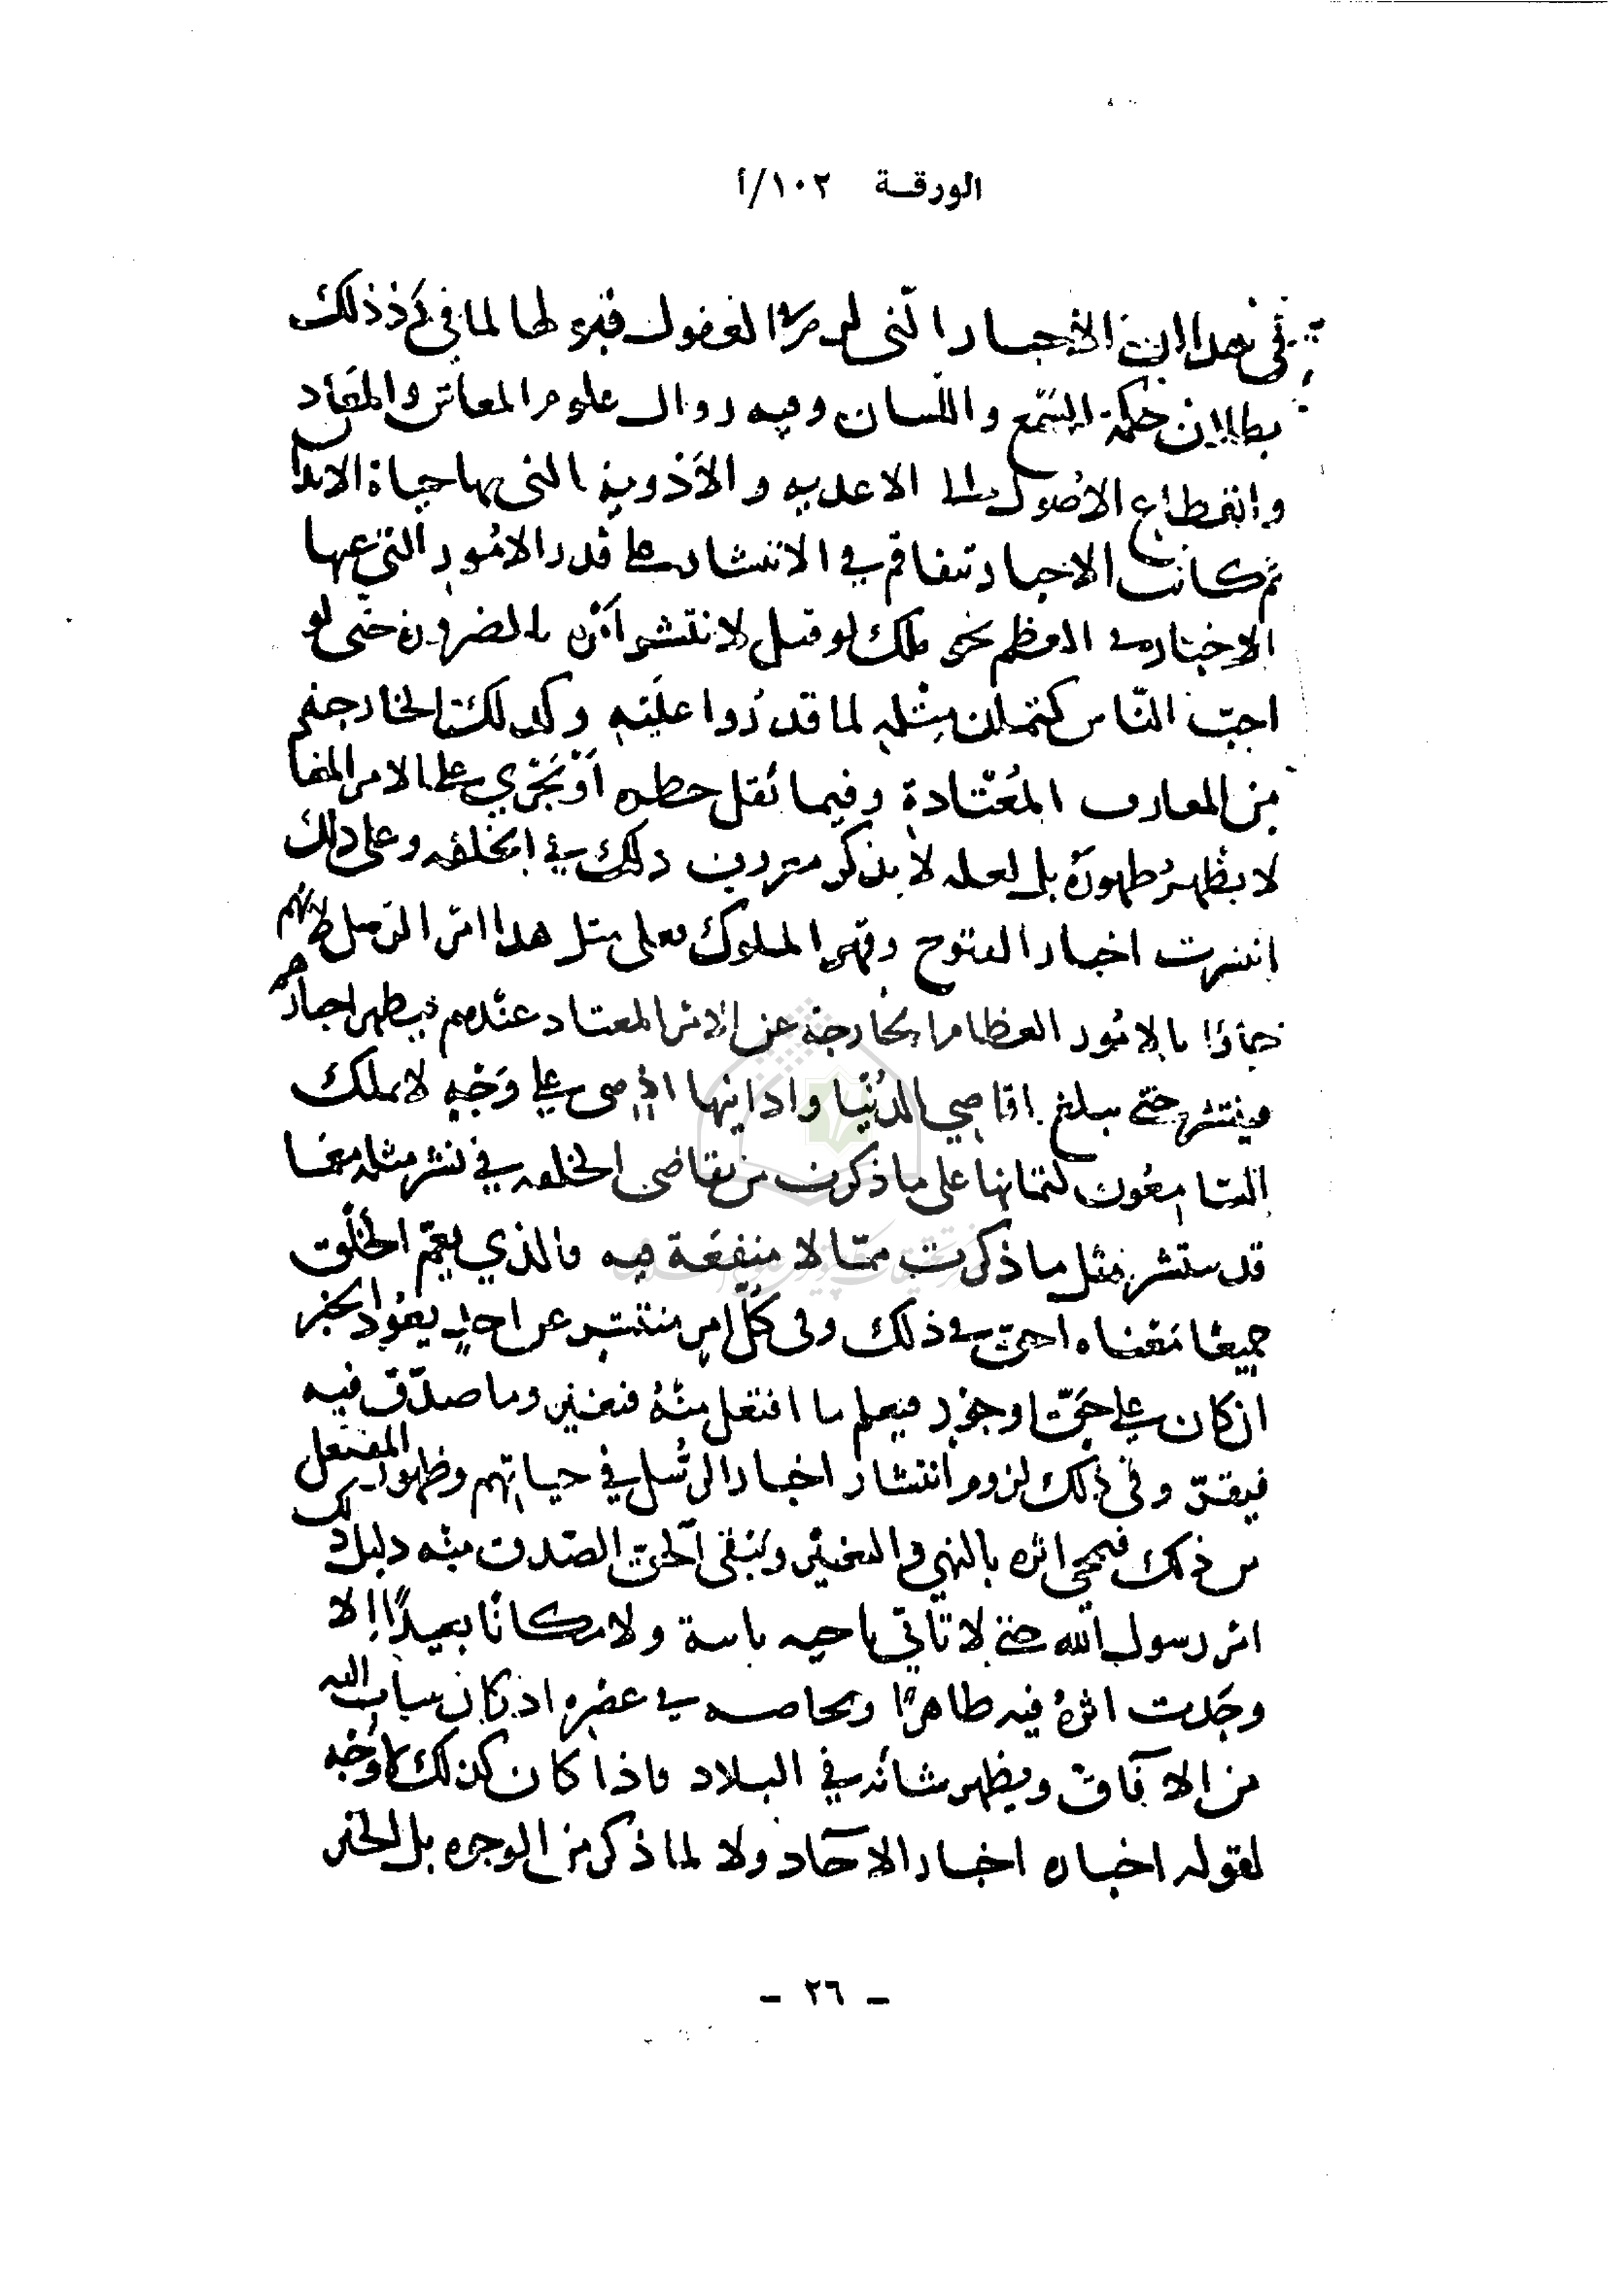 الورقة ١٠٢/أ
في هدا ان الأخبار التى لم العقول قبول لها لما في رد ذلك
بطلان حكمة السمع واللسان وفيه روال علوم المعاش والمعاد
وانقطاع الاصول الى الاعديه والأدوية التى بها حياة الابدا
ثم كانت الاخبار تتفاقم في الانتشار على قدر الامور التي عنها
الاخبار في العظم نحو ملك لو قتل لانتشر امره بالضرورة حتى لو
احب النّاس كتمان مثله لما قدروا عليه وكذلك الخارجة
من المعارف المعتادة وفيما نقل حطره أو تجري على الامر المعتا
لا يظهر ظهوره بل لعله لا يذكر ذلك في الخلقه وعلى ذلك
انتشرت اخبار الفتوح وقهر الملوك فعلى مثل هدا امر الرسل لانهم
جاؤا بالامور العظام الخارجة عن الامر المعتاد عندهم فيظهر اخبارهم
فينتشر حتى يبلغ اقاصي الدنيا وادانيها على وجه لا يملك
السامعون كتمانها على ما ذكرت من تقاضى الخلقه في نشر مثله مما
قد ينتشر مثل ما ذكرت ممّا لا منفعة فيه فالذي يعمّ الخلق
جميعًا معناه احق في ذلك وفى كلّ امر منتشر عن احاد يعود الخبر
ان كان على حق او جور فيعلم ما افتعل منه فتغير وما صدّق فيه
فيقر وفي ذلك لزوم انتشار اخبار الرسل في حياتهم وظهور المفتعل
من ذلك فيمحي اثره بالنهي والتغيير ويبقى الحق الصدق منه دليل ذلك
امر رسول الله حتى لا تأتي ناحيه نائية ولا مكانًا بعيدًا الا
وجدت اثره فيه ظاهرًا وبخاصه في عصره اذ كان ينتاب اليه
من الآفاق ويظهر شأنه في البلاد فاذا كان كذلك لا وجه
لقوله اخباره اخبار الآحاد ولا لما ذكر من الوجوه بل الخبر
- ٢٦ -